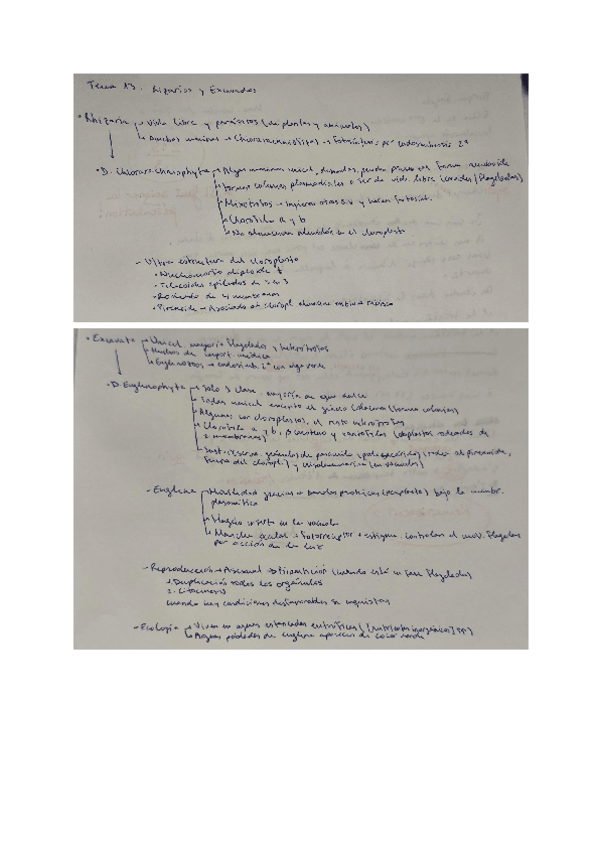 Tema 13. Rizarios y Excavados
• Rhizaria Vida libre y parásitos (de plantas y animales)
Muchas marinas → Chlorarachniofitas → Fotosíntesis por endosimbiosis 2ª
• D. Chlorarachnophyta Algas marinas unicel, desnudas, pueden forman
Forman colonias plasmodiales o ser de vida libre (cocoides/flagelados)
Mixótrofos → ingieren otros y hacen fotosínt.
Clorofila a y b
No almacenan almidón en el cloroplasto
- Ultraestructura del cloroplasto
• Nucleomorfo
• Tilacoides apilados de 3 en 3
• Rodeado de 4 membranas
• Pirenoide → Asociado al cloropl
• Excavata Unicel. mayoría flagelados y heterótrofos
Muchos de import. médica
Euglenozoos → endosimb. 2ª con alga verde
• D. Euglenophyta Solo 1 clase, mayoría de agua dulce
Todas unicel excepto el género Colacium (forma colonias)
Algunas con cloroplastos, el resto heterótrofas
Clorofila a y b, β caroteno y xantofilas (cloroplastos rodeados de
3 membranas)
Sust. reserva: gránulos de paramilo (polisacárido) (rodea al pirenoide,
fuera del cloropl.) y crisolaminarina (en vacuolas)
- Euglena Movilidad gracias a bandas proteicas (película) bajo la membr.
plasmática
Flagelo inserto en la vacuola
Mancha ocular → Fotorreceptor + estigma. Controlan el mov. flagelar
por acción de la luz
- Reproducción → Asexual → Bipartición (cuando está en fase flagelada)
1. Duplicación todos los orgánulos
2. Citocinesis
Cuando hay condiciones desfavorables se enquistan
- Ecología Viven en aguas estancadas eutróficas ([nutrientes inorgánicos] ↑↑)
Aguas pobladas de euglena aparecen de color verde